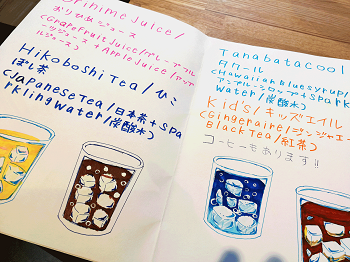 Orihime Juice/
おりひめジュース
(Grapefruit Juice/グレープフル
ーツジュース+Apple Juice/アップ
ルジュース)
Hikoboshi Tea/ひこ
ぼし茶
(Japanese Tea/日本茶+Spa
rkling Water/炭酸水)
Tanabata cool
タクール
(Hawaiian blue syrup/
+Spark
Water/炭酸水)
Kid's/キッズエイル
(Gingeraire/ジンジャーエ
Black Tea/紅茶)
コーヒーもあります!!